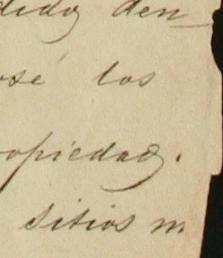 dido den
osé los
opiedad.
sitios m